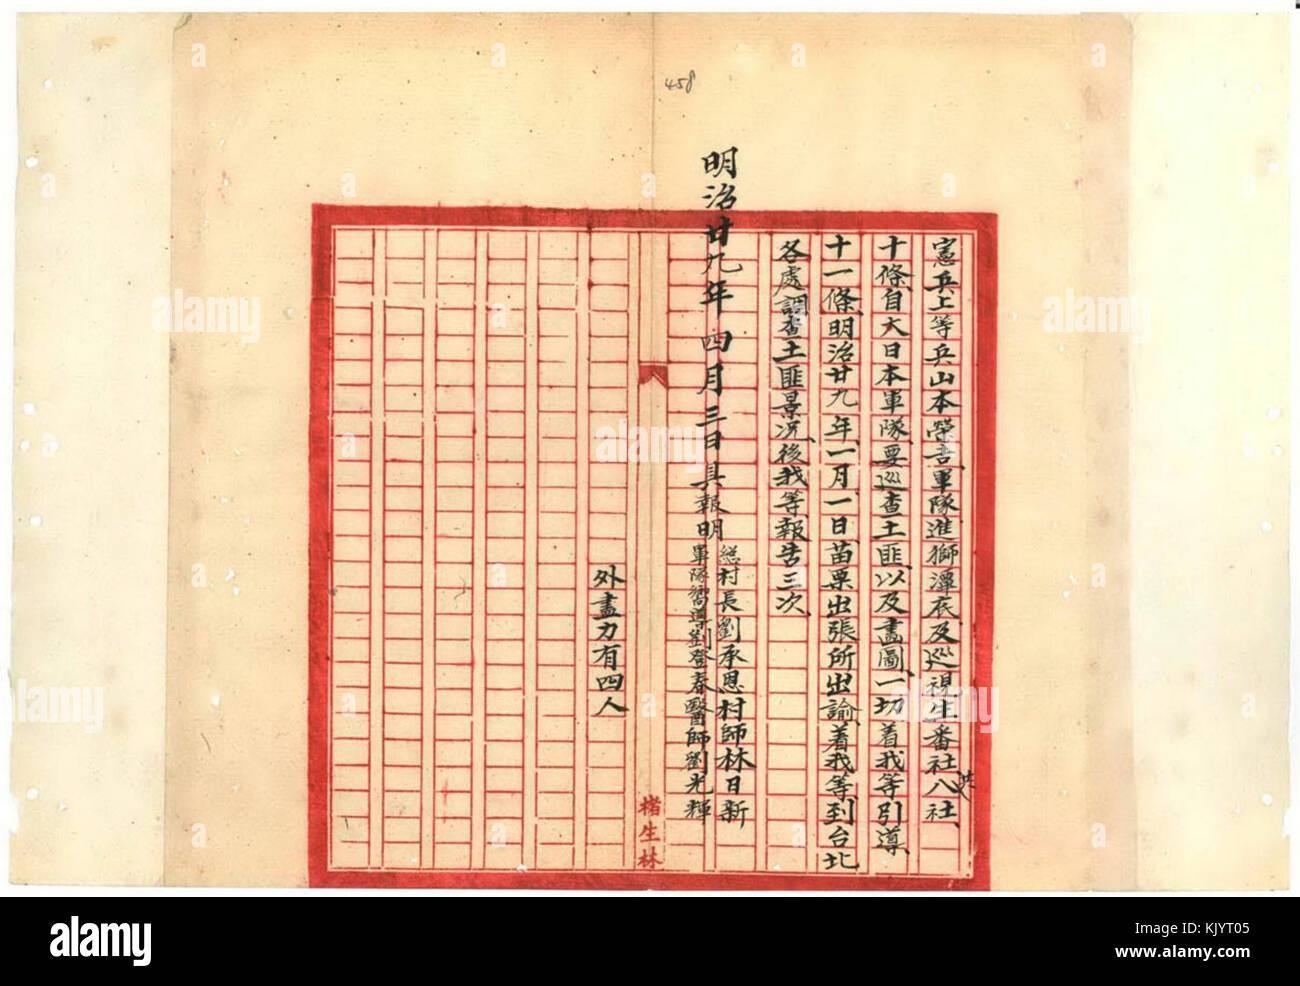 458
憲兵上等兵山本榮吾軍隊進獅潭底及巡視生番社共八社、
十條、自大日本軍隊要巡查土匪、以及畫圖、一切着我等引導、
十一條、明治廿九年、一月、一日苗栗出張所出諭、着我等、到台北
各處調查土匪景况、後我等、報告三次、
明治廿九年四月三日具報明
總村長劉承恩村師林日新
軍隊嚮導劉登春醫師劉光輝
楮生林
外盡力有四人
alamy stock photo
alamy
Image ID: KJYT05
www.alamy.com